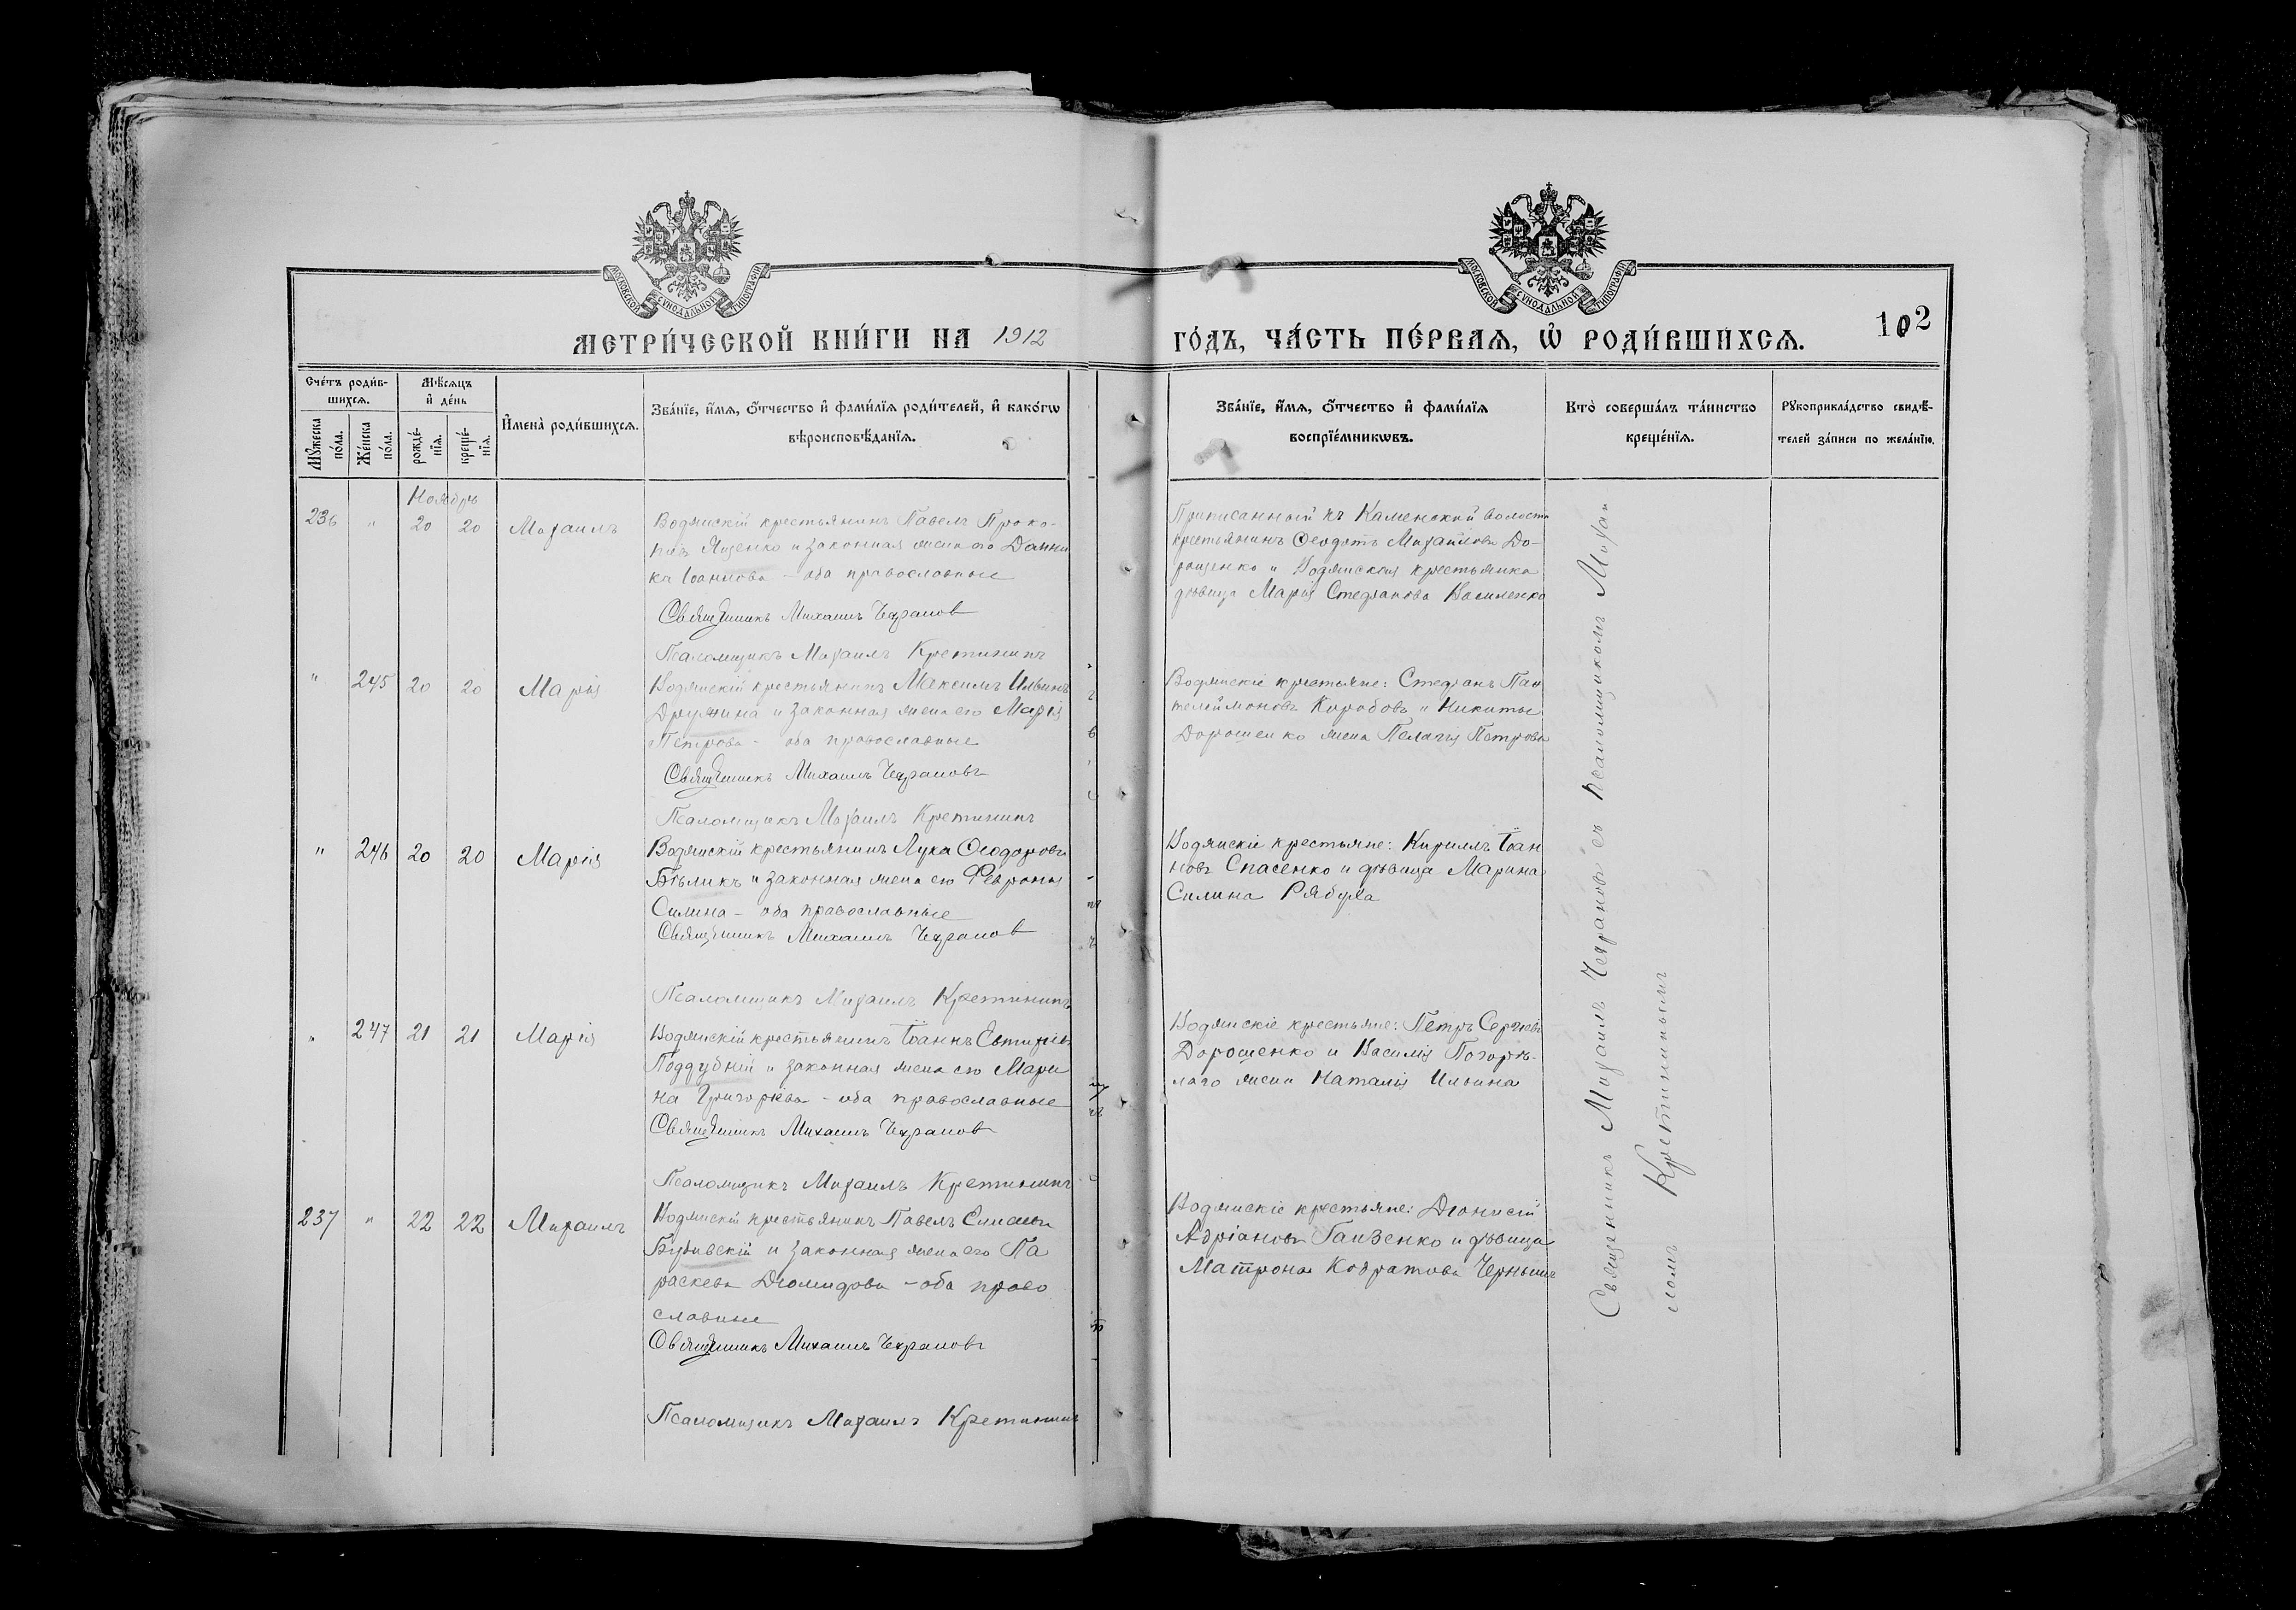 МОСКОВСКОЙ СѴНОДАЛЬНОЙ ТИПОГРАФІИ
МОСКОВСКОЙ СѴНОДАЛЬНОЙ ТИПОГРАФІИ
МЕТРИ́ЧЕСКОЙ КНИ́ГИ НА 1912
ГО́ДЪ, ЧА́СТЬ ПЕ́РВАѦ, Ѡ҆ РОДИ́ВШИХСѦ.
102
Сче́тъ роди́в-
шихсѧ.
Мѣ́сѧцъ
и҆ де́нь
И҆мена̀ роди́вшихсѧ.
Зва́нїе, и҆́мѧ, ѻ҆́тчество и҆ фами́лїѧ роди́телей, и҆ како́гѡ
вѣроисповѣ́данїѧ.
Мꙋ́жеска
по́ла.
Же́нска
по́ла.
рожде́-
нїѧ.
креще́-
нїѧ.
Зва́нїе, и҆́мѧ, ѻ҆́тчество и҆ фами́лїѧ
воспрїе́мникѡвъ.
Кто̀ соверша́лъ та́инство
креще́нїѧ.
Рꙋкоприкла́дство свидѣ́-
телей за́писи по жела́нїю.
Ноябрь
236 " 20 20 Михаилъ
Водянскій крестьянинъ Павелъ Проко-
піевъ Яценко и законная жена его
Іоаннова – оба православные
Священникъ Михаилъ Чехрановъ
Псаломщикъ Михаилъ Кретининъ
Приписанный къ Каменской волости
крестьянинъ Ѳеодотъ Михайловъ До-
рошенко и Водянская крестьянка
дѣвица Марія Стефанова Василенко
" 245 20 20 Марія
Водянскій крестьянинъ Максимъ Ильинъ
Дружина и законная жена его Марія
Петрова – оба православные
Священникъ Михаилъ Чехрановъ
Псаломщикъ Михаилъ Кретининъ
Водянскіе крестьяне: Стефанъ Пан
телеймоновъ Коробовъ и Никиты
Дорошенко жена Пелагія Петрова
" 246 20 20 Марія
Водянскій крестьянинъ Лука Ѳеодоровъ
Бѣликъ и законная жена его Феврония
Силина – оба православные
Священникъ Михаилъ Чехрановъ
Псаломщикъ Михаилъ Кретининъ
Водянскіе крестьяне: Кириллъ Іоан
новъ Спасенко и дѣвица Марина
Силина Рябуха
" 247 21 21 Марія
Водянскій крестьянинъ Іоаннъ Евтихіевъ
Поддубній и законная жена его Мари
на Григоріева – оба православные
Священникъ Михаилъ Чехрановъ
Псаломщикъ Михаилъ Кретининъ
Водянскіе крестьяне: Петръ Сергіевъ
Дорошенко и Василія Погорѣ-
лаго жена Наталія Ильина
237 " 22 22 Михаилъ
Водянскій крестьянинъ Павелъ
и законная жена его Па
раскева Діомидова – оба право
славные
Священникъ Михаилъ Чехрановъ
Псаломщикъ Михаилъ Кретининъ
Водянскіе крестьяне: Діонисій
Адріановъ Ганзенко и дѣвица
Матрона Кодратова
Священникъ Михаилъ Чехрановъ съ псаломщикомъ Михаи
ломъ Кретининымъ